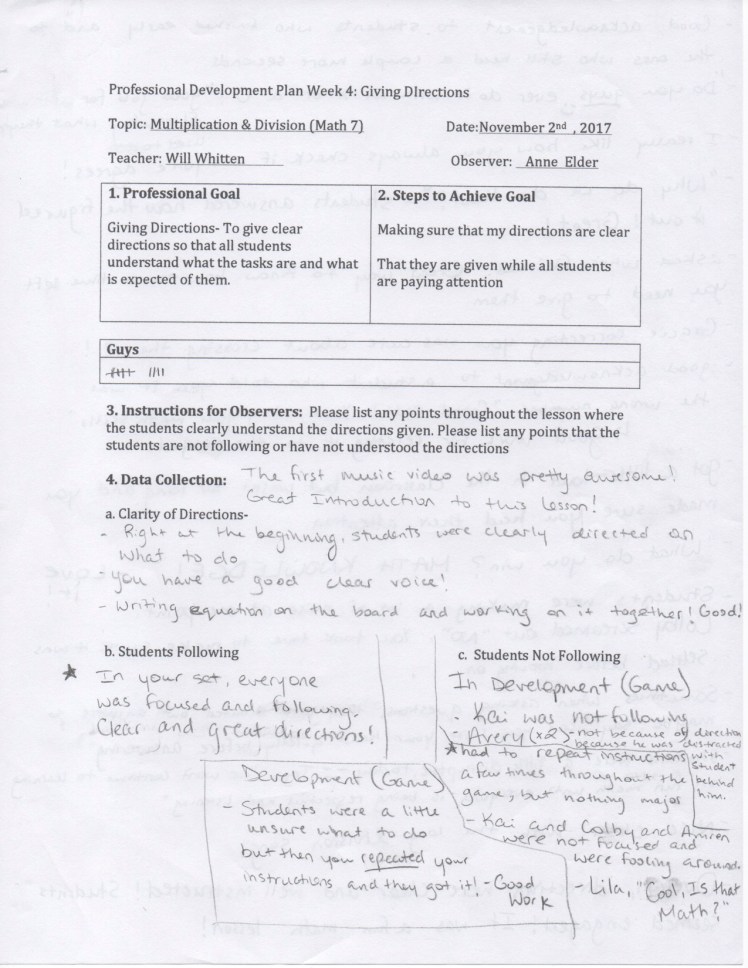 Professional Development Plan Week 4: Giving DIrections
Topic: Multiplication & Division (Math 7)
Date: November 2nd , 2017
Teacher: Will Whitten
Observer: Anne Elder
1. Professional Goal
Giving Directions- To give clear
directions so that all students
understand what the tasks are and what
is expected of them.
2. Steps to Achieve Goal
Making sure that my directions are clear
That they are given while all students
are paying attention
Guys
3. Instructions for Observers: Please list any points throughout the lesson where
the students clearly understand the directions given. Please list any points that the
students are not following or have not understood the directions
4. Data Collection: The first music video was pretty awesome!
Great Introduction to this lesson!
a. Clarity of Directions-
- Right at the beginning, students were clearly directed on
what to do
you have a good clear voice!
- Writing equation on the board and working on it together! Good!
b. Students Following
★ In your set, everyone
was focused and following.
Clear and great directions!
Development (Game)
- Students were a little
unsure what to do
but then you repeated your
instructions and they got it! - Good
Work
c. Students Not Following
In Development (Game)
- Kai was not following
Avery (x2) - not because of direction
because he was distracted
with
student
behind
him.
★ had to repeat instructions
a few times throughout the
game, but nothing major
- Kai and Colby and
were not focused and
were fooling around.
- Lila, "Cool, Is that
Math?"